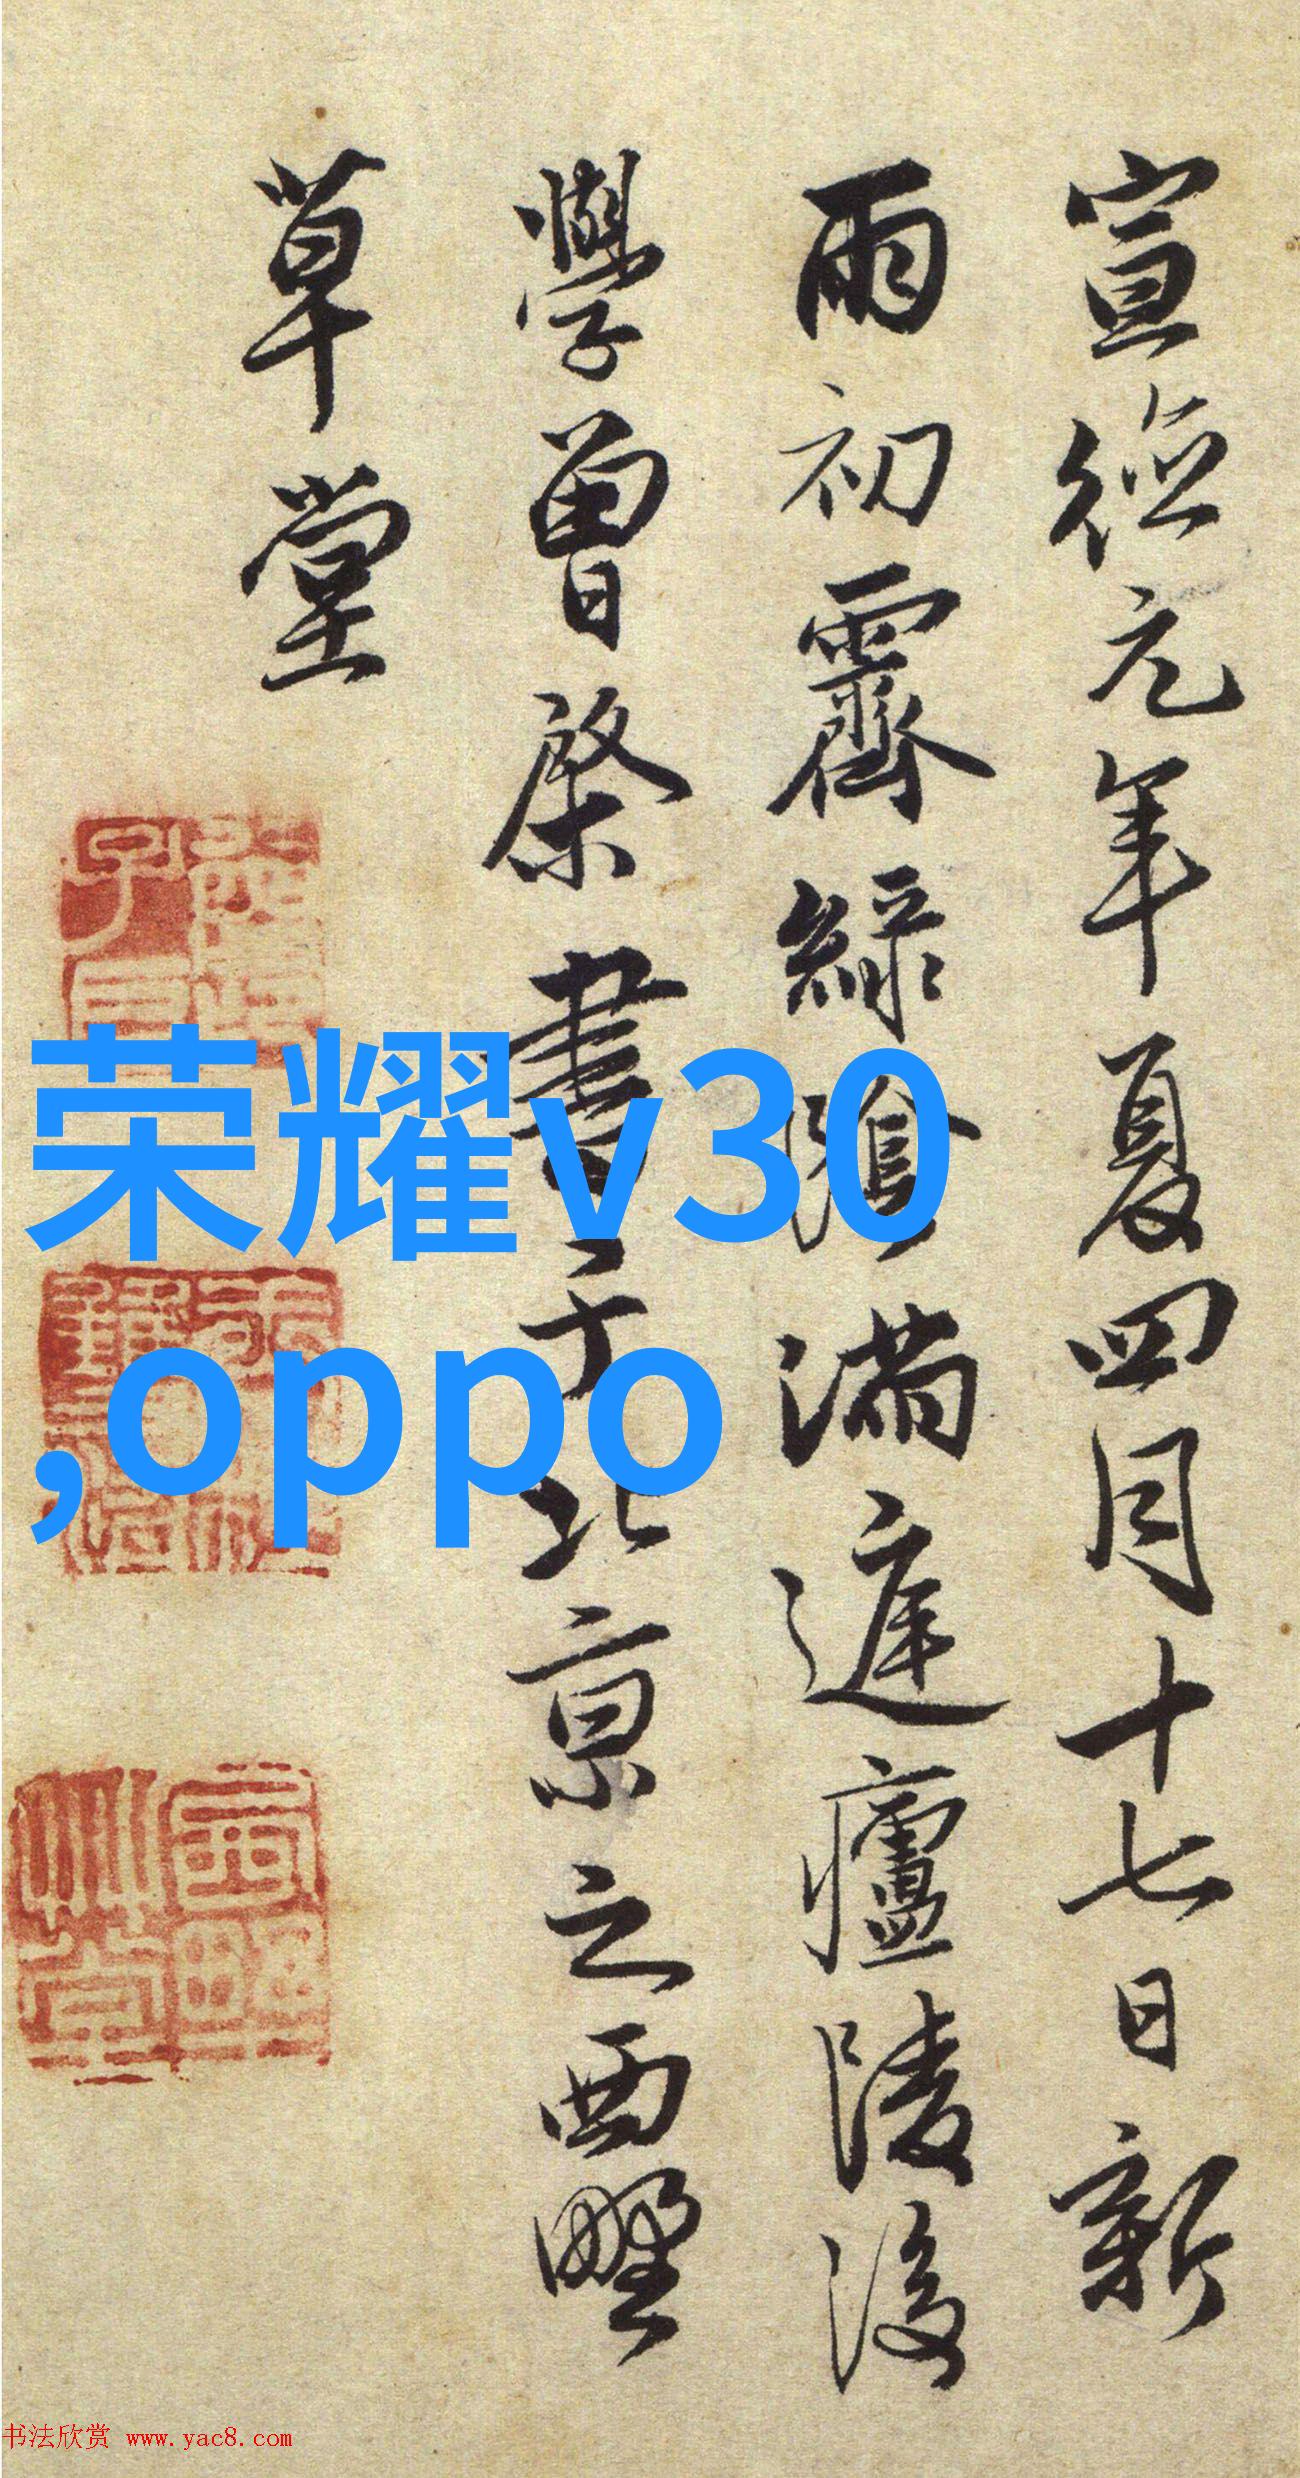 宣德元年夏四月十七日新
雨初霽綠陰滿遲廬陵後
學曾棨書于北京之西墅
草堂
荣耀v30
,oppo
书法欣赏 www.yac8.com